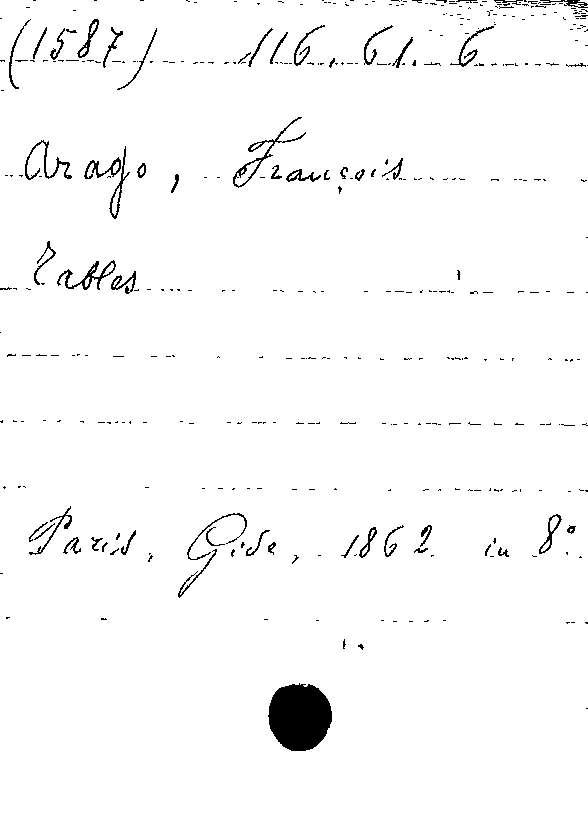 (1587) 116.61.6
Arago, François
Tables
Paris, Gide, 1862 in 8°.